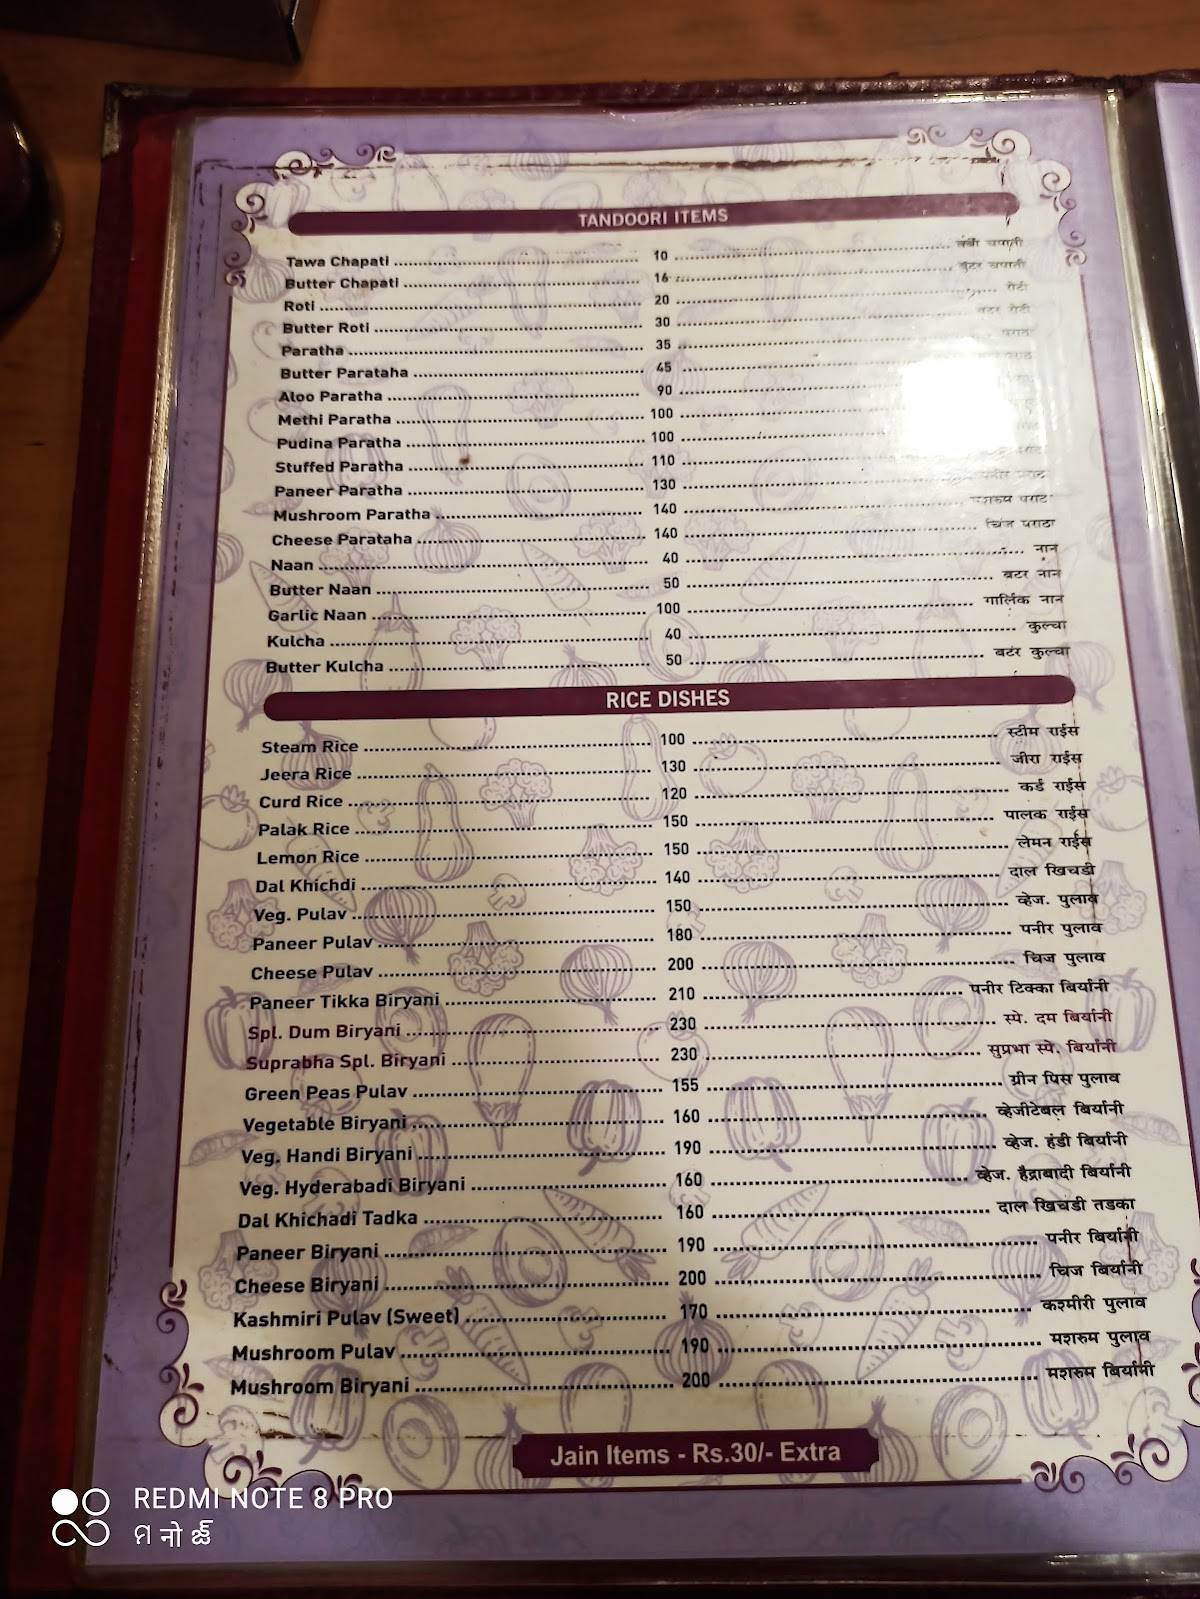 TANDOORI ITEMS
Tawa Chapati 10 चपाती
Butter Chapati 16 बटर चपाती
Roti 20 रोटी
Butter Roti 30 बटर रोटी
Paratha 35
Butter Parataha 45
Aloo Paratha 90
Methi Paratha 100
Pudina Paratha 100
Stuffed Paratha 110
Paneer Paratha 130 पनीर
Mushroom Paratha 140 मशरुम पराठा
Cheese Parataha 140 चिज पराठा
Naan 40 नान
Butter Naan 50 बटर नान
Garlic Naan 100 गार्लिक नान
Kulcha 40 कुल्चा
Butter Kulcha 50 बटर कुल्चा
RICE DISHES
Steam Rice 100 स्टीम राईस
Jeera Rice 130 जीरा राईस
Curd Rice 120 कर्ड राईस
Palak Rice 150 पालक राईस
Lemon Rice 150 लेमन राईस
Dal Khichdi 140 दाल खिचडी
Veg. Pulav 150 व्हेज. पुलाव
Paneer Pulav 180 पनीर पुलाव
Cheese Pulav 200 चिज पुलाव
Paneer Tikka Biryani 210 पनीर टिक्का बिर्यानी
Spl. Dum Biryani 230 स्पे. दम बिर्यानी
Suprabha Spl. Biryani 230 सुप्रभा स्पे. बिर्यानी
Green Peas Pulav 155 ग्रीन पिस पुलाव
Vegetable Biryani 160 व्हेजीटेबल बिर्यानी
Veg. Handi Biryani 190 व्हेज. हंडी बिर्यानी
Veg. Hyderabadi Biryani 160 व्हेज. हैद्राबादी बिर्यानी
Dal Khichadi Tadka 160 दाल खिचडी तडका
Paneer Biryani 190 पनीर बिर्यानी
Cheese Biryani 200 चिज बिर्यानी
Kashmiri Pulav (Sweet) 170 कश्मीरी पुलाव
Mushroom Pulav 190 मशरुम पुलाव
Mushroom Biryani 200 मशरुम बिर्यानी
Jain Items - Rs.30/- Extra
REDMI NOTE 8 PRO